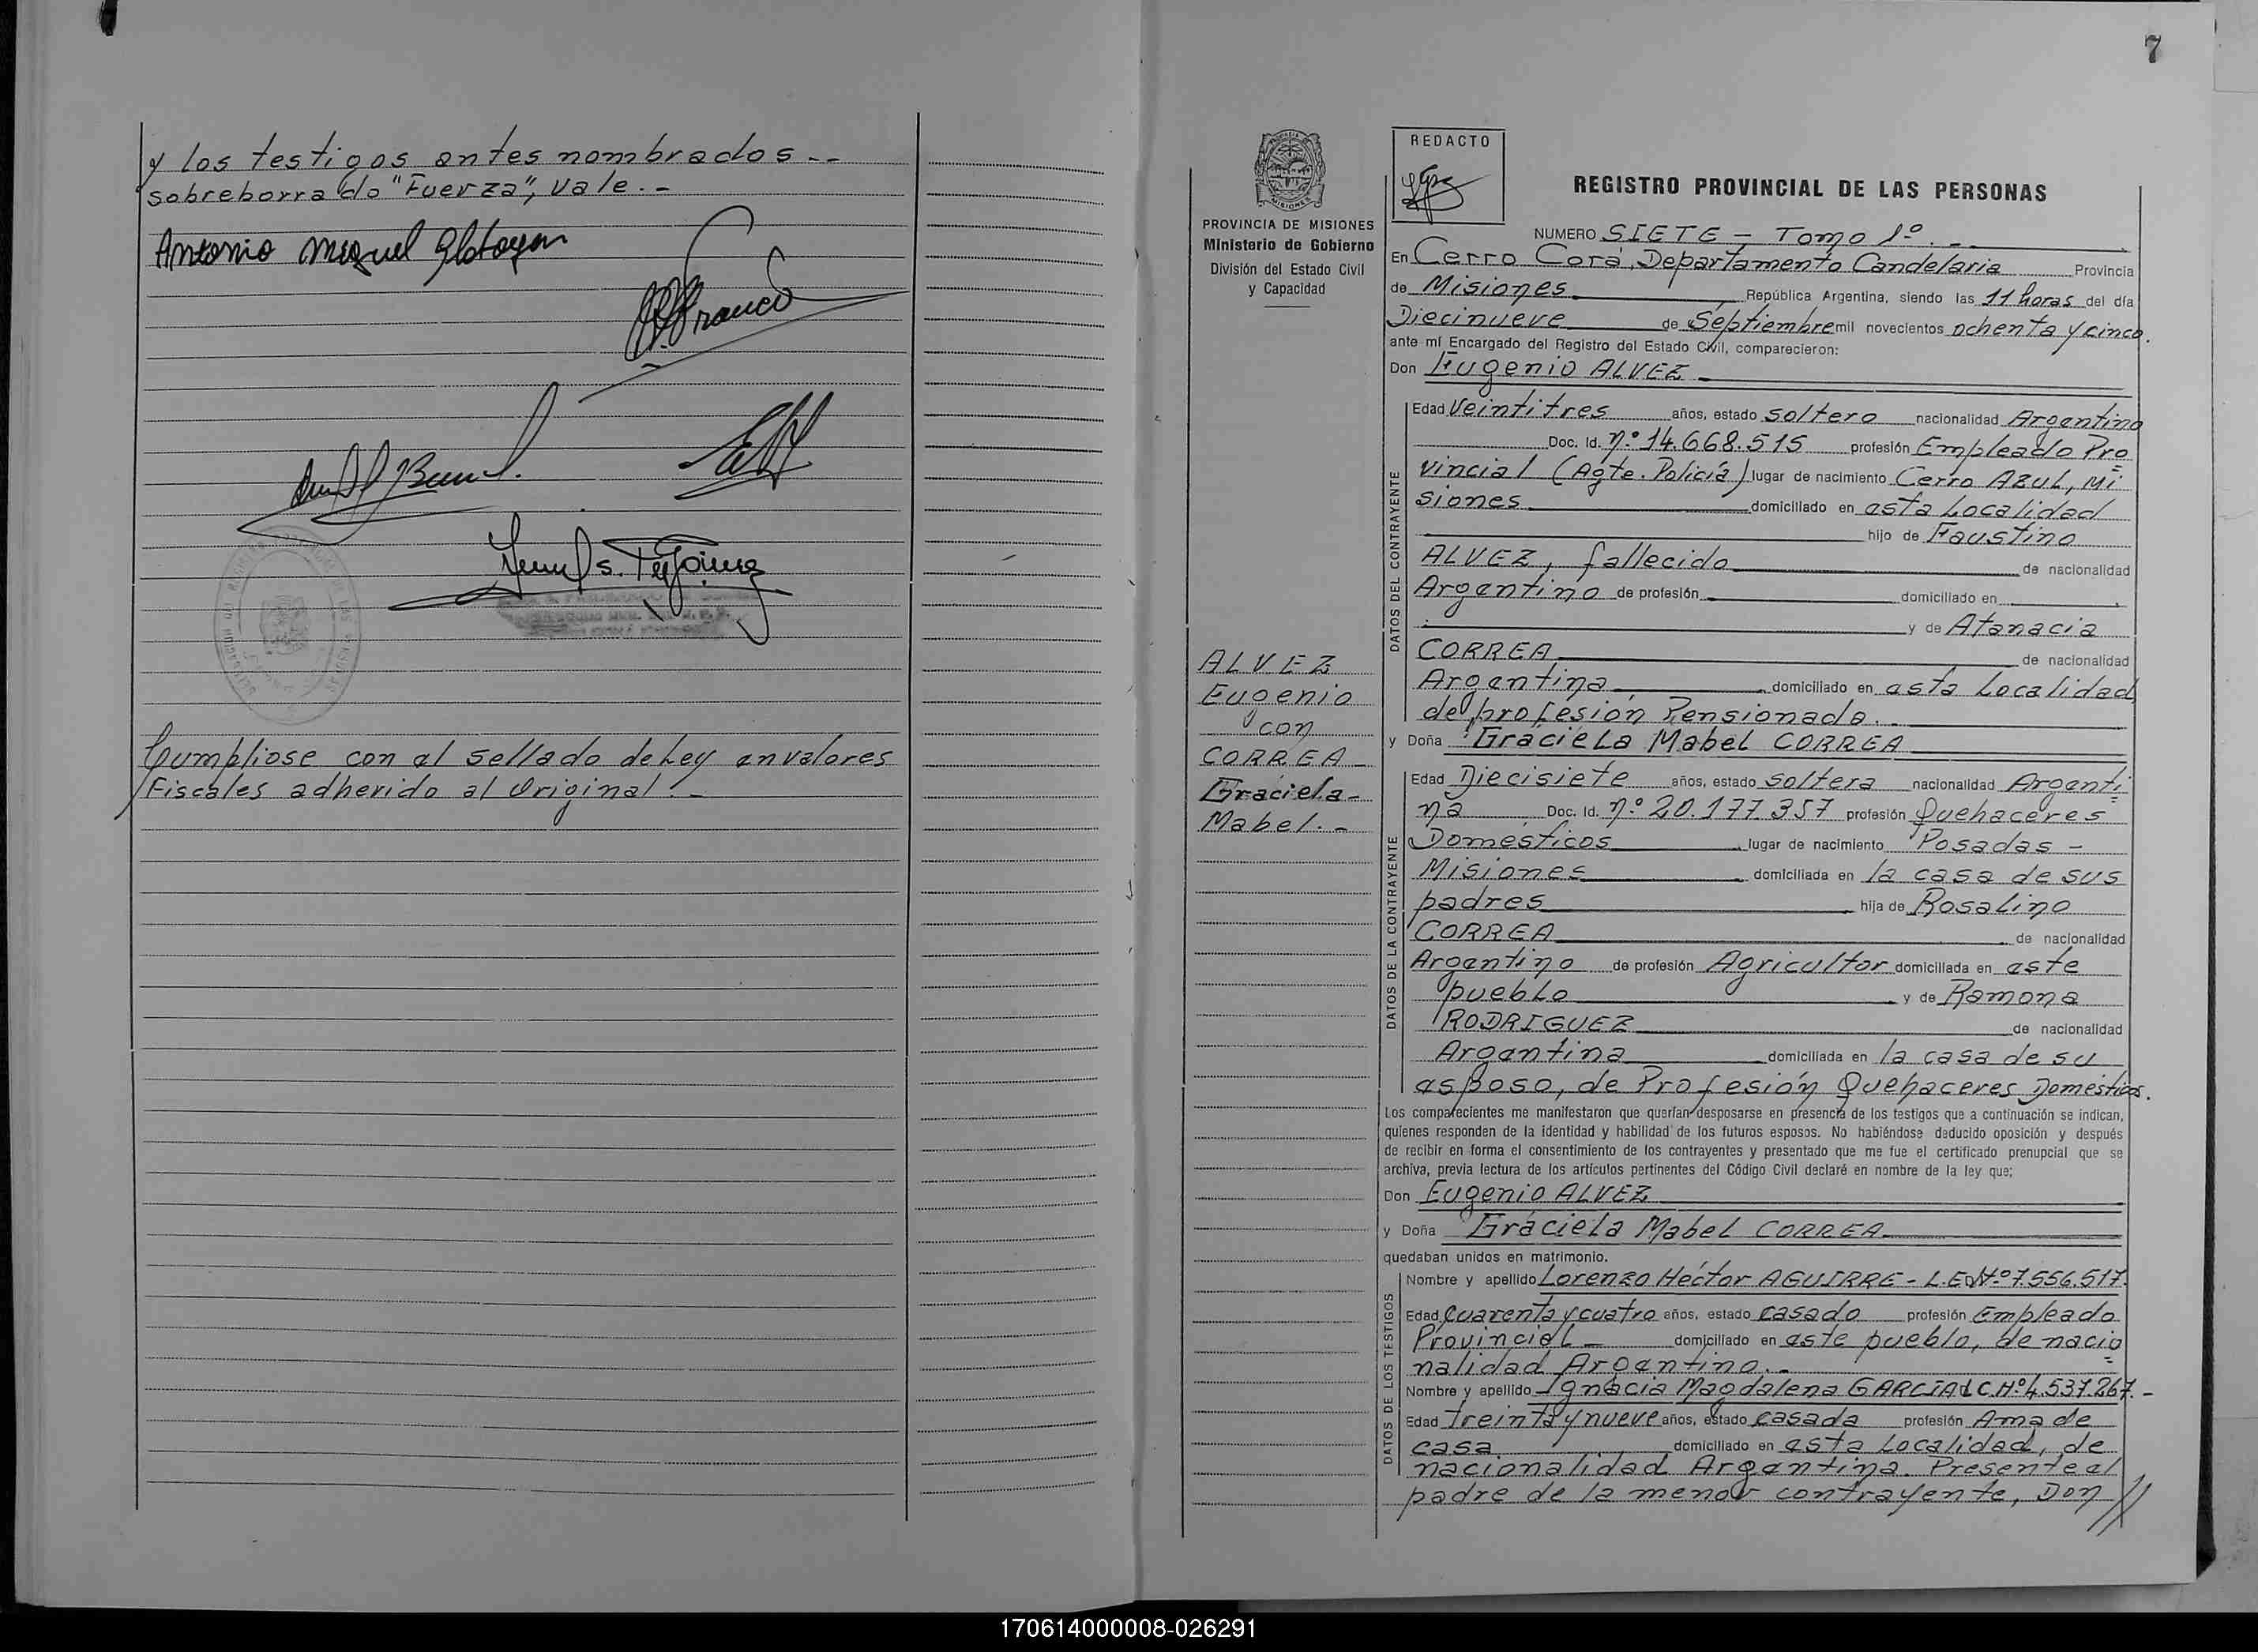 y los testigos antes nombrados.--
sobreborrado "Fuerza", vale.-
Antonio Miguel
Franco
Cumpliose con el sellado de Ley en valores
Fiscales adherido al Original.-
7
REDACTO
REGISTRO PROVINCIAL DE LAS PERSONAS
PROVINCIA DE MISIONES
Ministerio de Gobierno
División del Estado Civil
y Capacidad
ALVEZ
Eugenio
con
CORREA-
Graciela-
Mabel.-
NUMERO SIETE - Tomo 1º.-
En Cerro Corá, Departamento Candelaria Provincia
de Misiones República Argentina, siendo las 11 horas del día
Diecinueve de Septiembre mil novecientos ochenta y cinco.
ante mí Encargado del Registro del Estado Civil, comparecieron:
Don Eugenio ALVEZ
DATOS DEL CONTRAYENTE
Edad Veintitres años, estado soltero nacionalidad Argentino
Doc. Id. Nº 14.668.515 profesión Empleado Pro
vincial (Agte. Policía) lugar de nacimiento Cerro AZUL, Mi
siones domiciliado en esta Localidad
hijo de Faustino
ALVEZ, fallecido de nacionalidad
Argentino de profesión domiciliado en
y de Atanacia
CORREA de nacionalidad
Argentina domiciliado en esta Localidad
de profesión Pensionada.-
y Doña Graciela Mabel CORREA
DATOS DE LA CONTRAYENTE
Edad Diecisiete años, estado soltera nacionalidad Argenti
na Doc. Id. Nº 20.177.357 profesión Quehaceres
Domésticos lugar de nacimiento Posadas -
Misiones domiciliada en la casa de sus
padres hija de Rosalino
CORREA de nacionalidad
Argentino de profesión Agricultor domiciliada en este
pueblo y de Ramona
RODRIGUEZ de nacionalidad
Argentina domiciliada en la casa de su
esposo, de Profesión Quehaceres Domésticos.
Los comparecientes me manifestaron que querían desposarse en presencia de los testigos que a continuación se indican,
quienes responden de la identidad y habilidad de los futuros esposos. No habiéndose deducido oposición y después
de recibir en forma el consentimiento de los contrayentes y presentado que me fue el certificado prenupcial que se
archiva, previa lectura de los artículos pertinentes del Código Civil declaré en nombre de la ley que;
Don Eugenio ALVEZ
y Doña Graciela Mabel CORREA
quedaban unidos en matrimonio.
DATOS DE LOS TESTIGOS
Nombre y apellido Lorenzo Héctor AGUIRRE - L.E.Nº 7.556.517.
Edad Cuarenta y cuatro años, estado casado profesión Empleado
Provincial - domiciliado en este pueblo, de nacio
nalidad Argentino.-
Nombre y apellido Ignacia Magdalena GARCIA L.C.Nº 4.537.267.-
Edad Treinta y nueve años, estado casada profesión Ama de
casa domiciliado en esta Localidad, de
nacionalidad Argentina. Presente el
padre de la menor contrayente, Don //
170614000008-026291